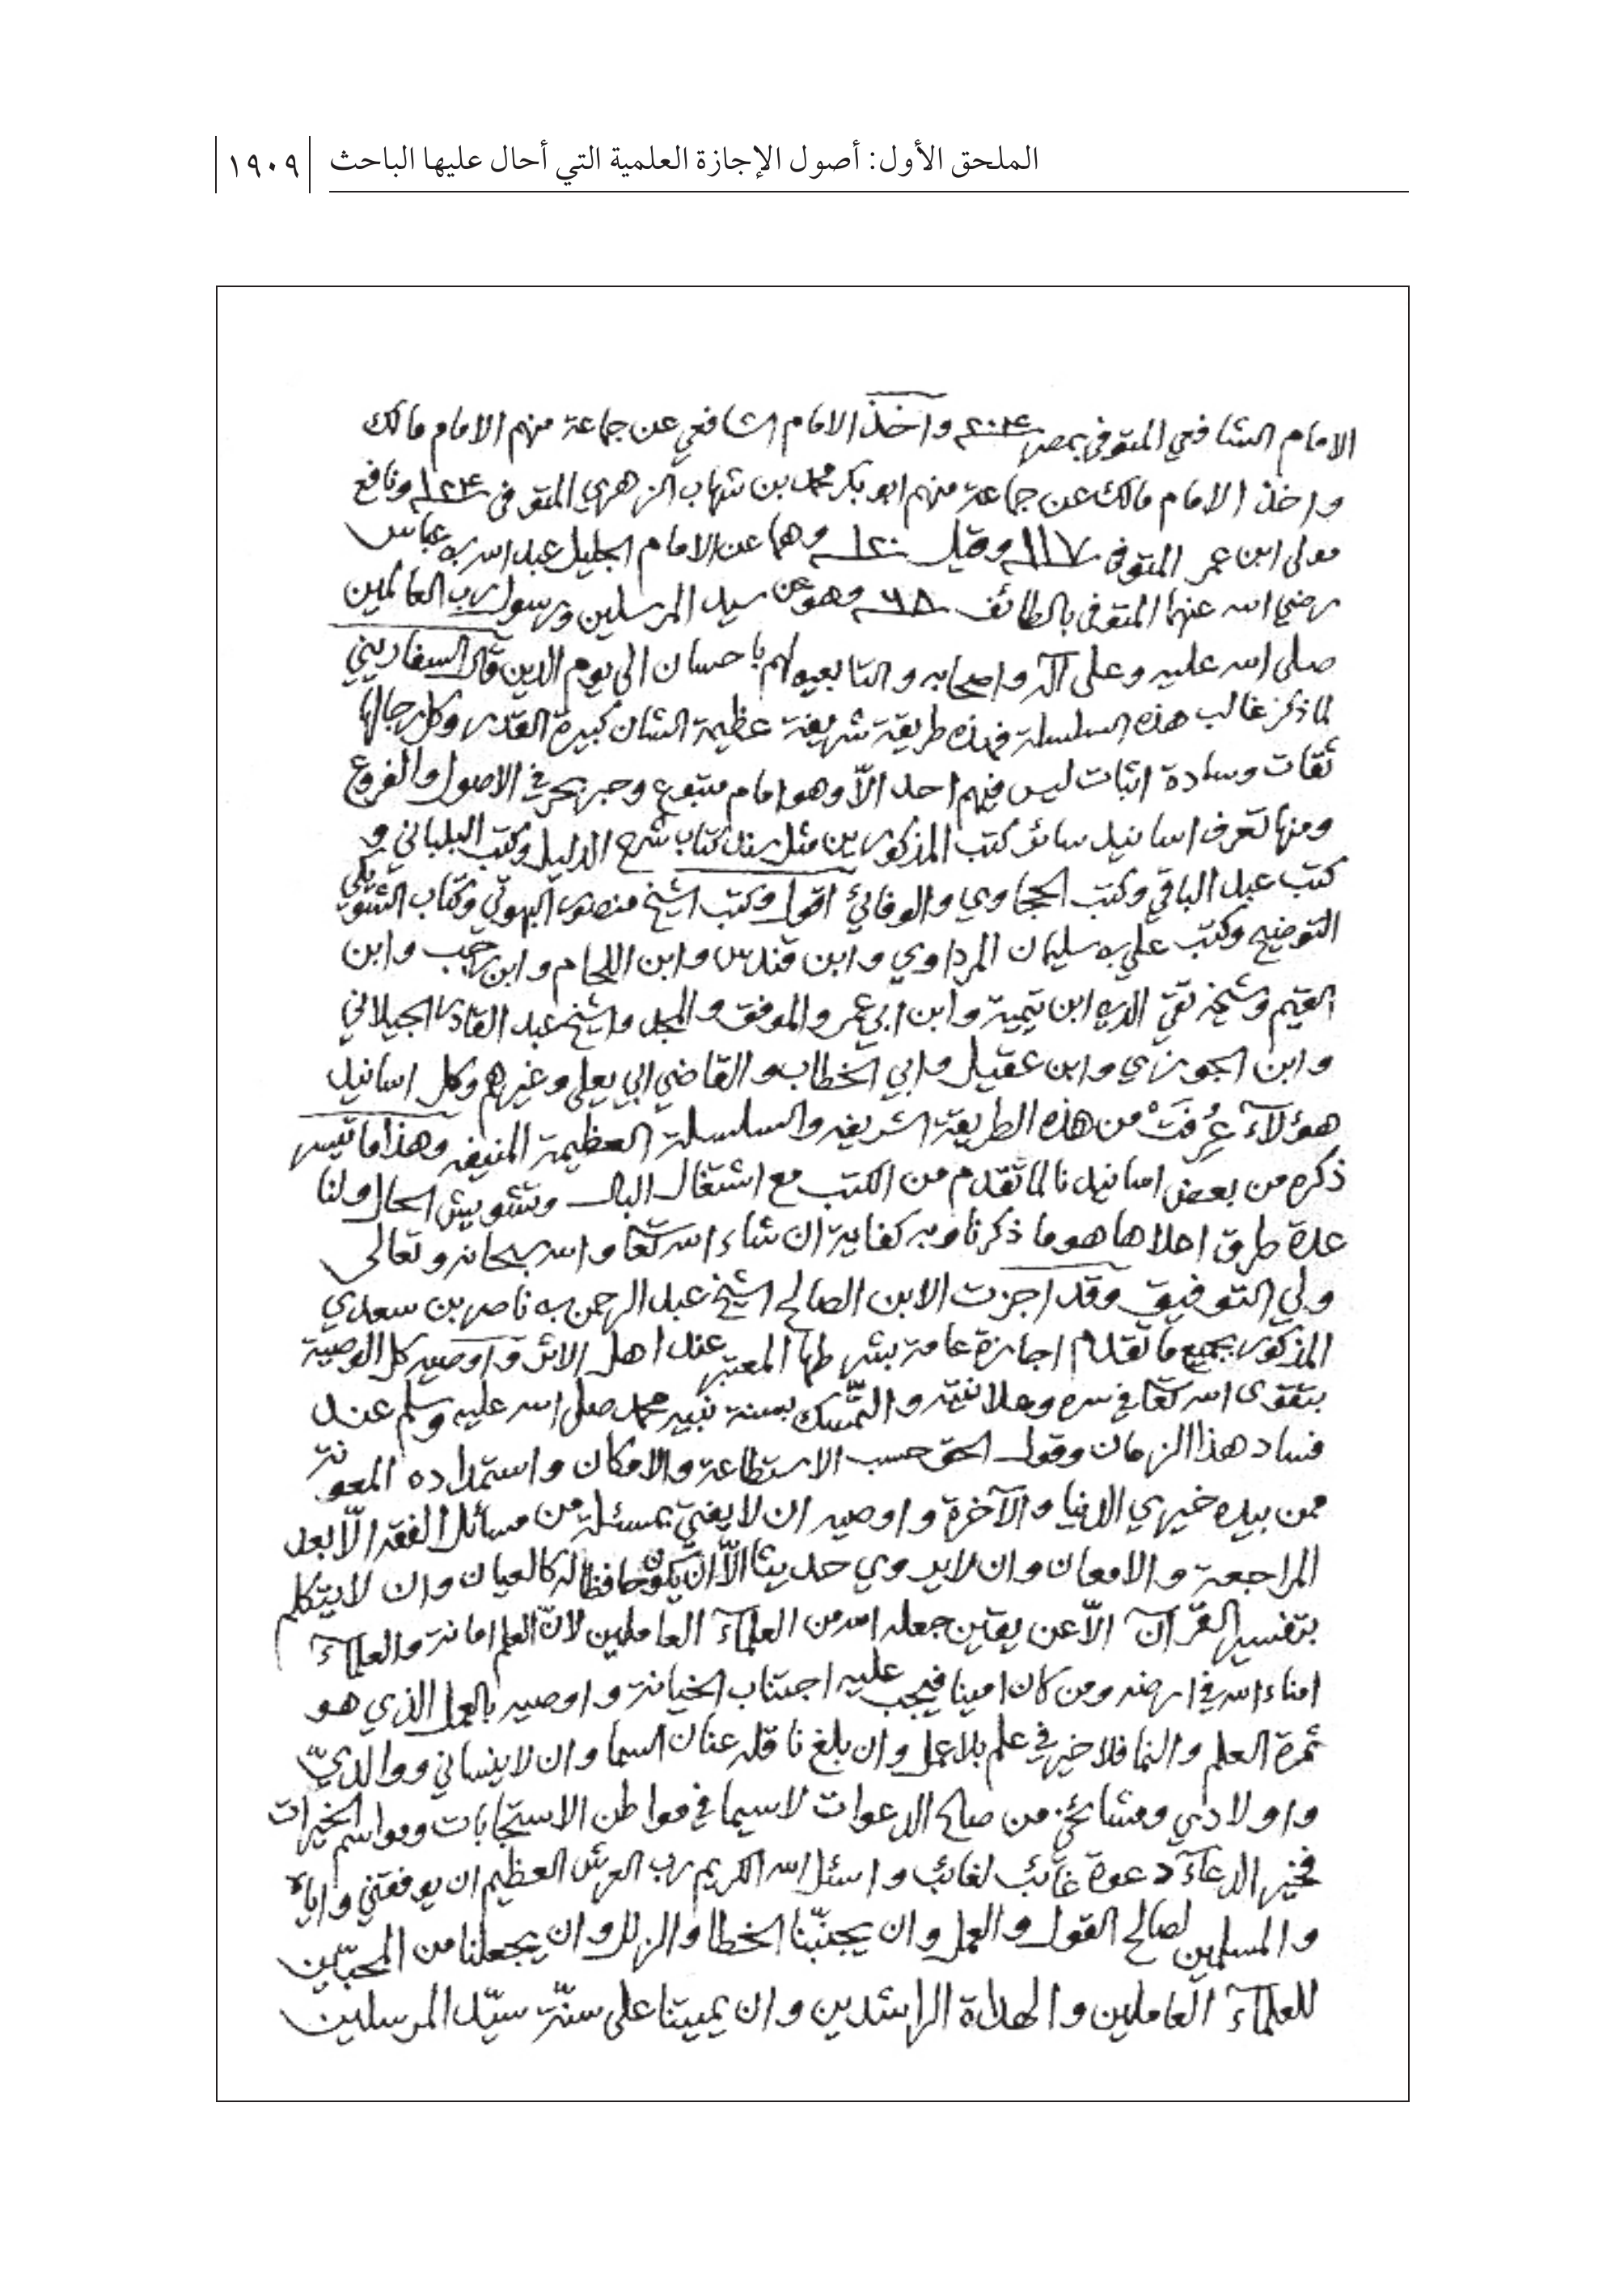 الملحق الأول: أصول الإجازة العلمية التي أحال عليها الباحث ١٩٠٩
الامام الشافعي المتوفى بمصر ٢٠٤ واخذ الامام الشافعي عن جماعة منهم الامام مالك
واخذ الامام مالك عن جماعة منهم ابو بكر محمد بن شهاب الزهري المتوفى ١٢٤ ونافع
مولى ابن عمر المتوفى ١١٧ وقيل ١٢٠ وهما عن الامام الجليل عبد الله بن عباس
رضي الله عنهما المتوفى بالطائف ٦٨ وهو عن سيد المرسلين ورسول رب العالمين
صلى الله عليه وعلى آله واصحابه والتابعين لهم باحسان الى يوم الدين قال السفاريني
لما ذكر غالب هذه السلسلة فهذه طريقة شريفة عظيمة الشان كبيرة القدر وكل رجالها
ثقات وسادة اثبات ليس فيهم احد الّا وهو امام متبوع وحبر بحر في الاصول والفروع
ومنها تعرف اسانيد سائر كتب المذكورين مثل سند كتاب شرح الدليل وكتب البلباني و
كتب عبد الباقي وكتب الحجاوي والوفائي اقول وكتب الشيخ منصور البهوتي وكتاب الشويكي
التوضيح وكتب علي بن سليمان المرداوي وابن قندس وابن اللحام وابن رجب وابن
القيم وشيخه تقي الدين ابن تيمية وابن ابي عمر والموفق والمجد والشيخ عبد القادر الجيلاني
وابن الجوزي وابن عقيل وابي الخطاب والقاضي ابي يعلى وغيرهم وكل اسانيد
هؤلآء عُرِفَتْ من هذه الطريقة الشريفه والسلسلة العظيمة المنيفه وهذا ما تيسر
ذكره من بعض اسانيدنا لما تقدم من الكتب مع اشتغال البال وتشويش الحال ولنا
عدة طرق احلاها هو ما ذكرنا وبه كفاية ان شاء الله تعا والله سبحانه وتعالى
ولي التوفيق وقد اجزت الابن الصالح الشيخ عبد الرحمن بن ناصر بن سعدي
المذكور بجميع ما تقدم اجازة عامة بشرطها المعتبر عند اهل الاثر واوصيه كل الوصية
بتقوى الله تعا في سره وعلانيته والتّمسك بسنة نبيه محمد صلى الله عليه وسلم عند
فساد هذا الزمان وقول الحق حسب الاستطاعة والامكان واستمداده المعونة
ممن بيده خيري الدنيا والآخرة واوصيه ان لا يفتي بمسئلة من مسائل الفقه الّا بعد
المراجعة والامعان وان لا يروي حديثا الّا ان يكون حافظا له كالعيان وان لا يتكلم
بتفسير القرآن الّا عن يقين جعله الله من العلمآء العاملين لانّ العلم امانة والعلمآء
امناء الله في ارضه ومن كان امينا فيجب عليه اجتناب الخيانة واوصيه بالعمل الذي هو
ثمرة العلم والنما فلا خير في علم بلا عمل وان بلغ ناقله عنان السما وان لا ينساني ووالديّ
واولادي ومشائخي من صالح الدعوات لا سيما في مواطن الاستجابات ومواسم الخيرات
فخير الدعآء دعوة غائب لغائب واسئل الله الكريم رب العرش العظيم ان يوفقني واياه
والمسلمين لصالح القول والعمل وان يجنّبنا الخطا والزلل وان يجعلنا من المحبّين
للعلمآء العاملين والهداة الراشدين وان يميتنا على سنّة سيّد المرسلين